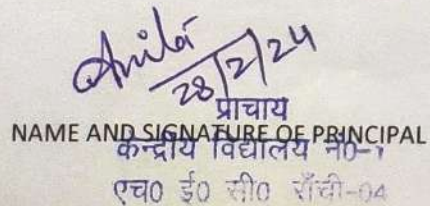 28/2/24
प्राचार्य
NAME AND SIGNATURE OF PRINCIPAL
केन्द्रीय विद्यालय नं०-1
एच० ई० सी० राँची-04